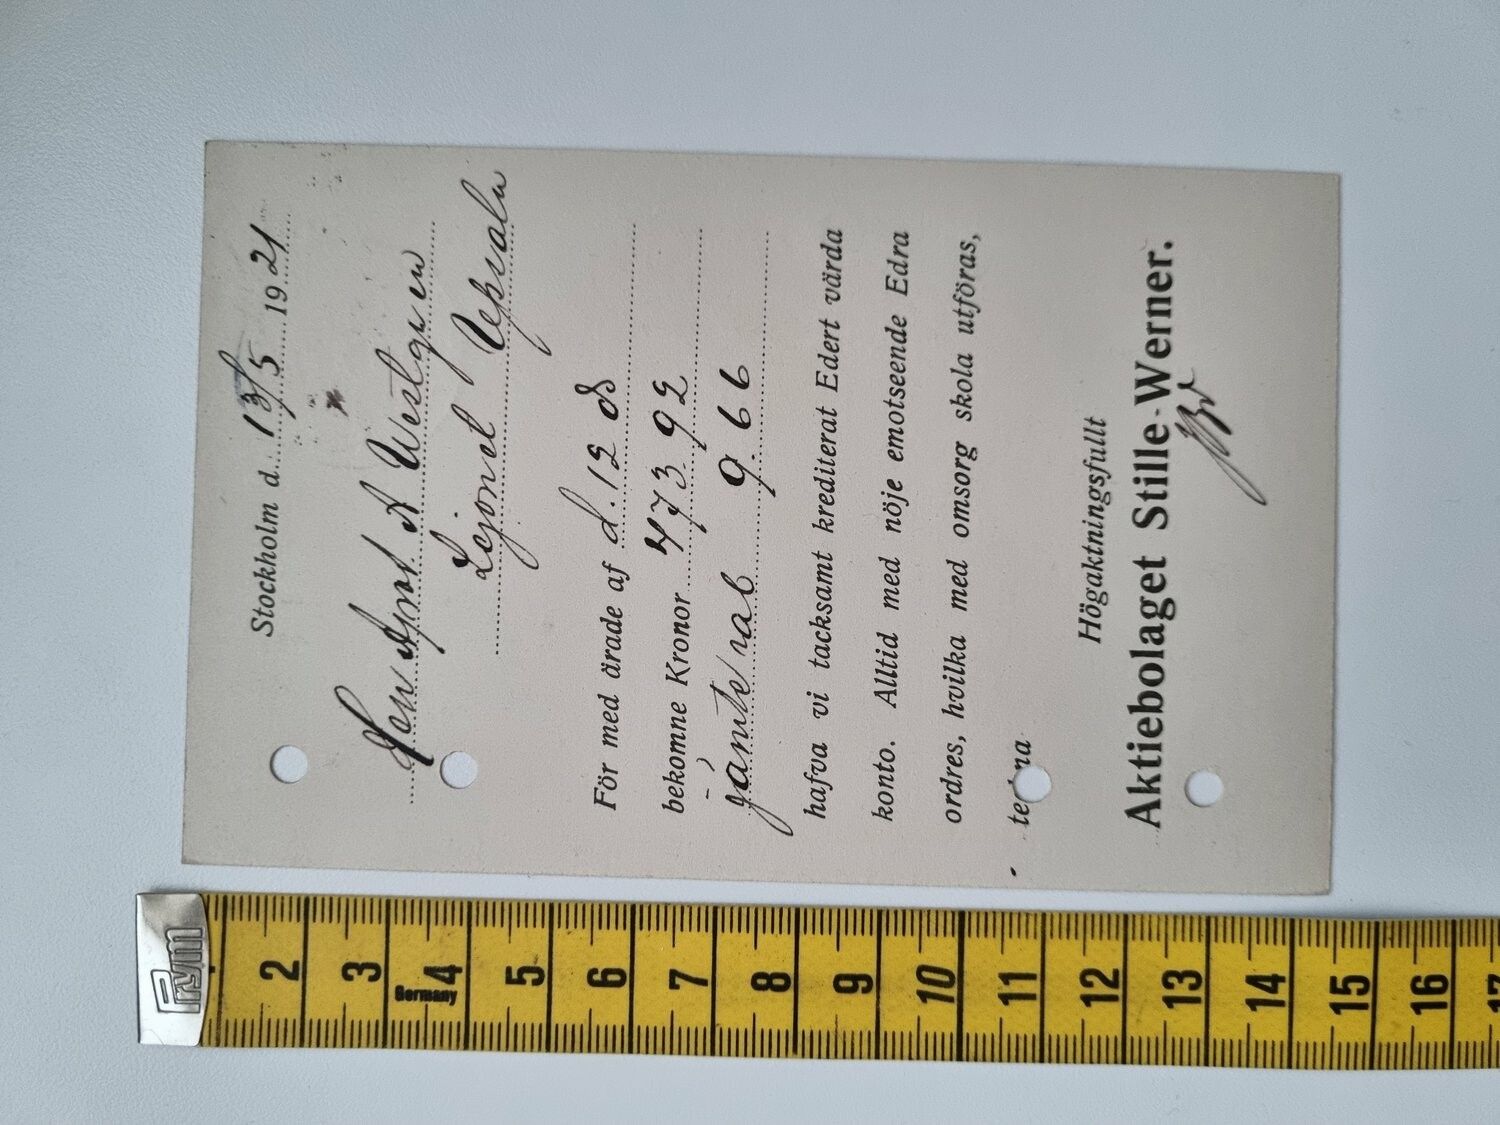 Stockholm d. 13/5 1921
Herr Apot. A Westgren
Lejonet Upsala
För med ärade af d. 12 ds
bekomne Kronor 473 92
jämte rab 9.66
hafva vi tacksamt krediterat Edert värda
konto. Alltid med nöje emotseende Edra
ordres, hvilka med omsorg skola utföras,
Högaktningsfullt
Aktiebolaget Stille-Werner.
Prym
2 3 4 5 6 7 8 9 10 11 12 13 14 15 16 17
Germany